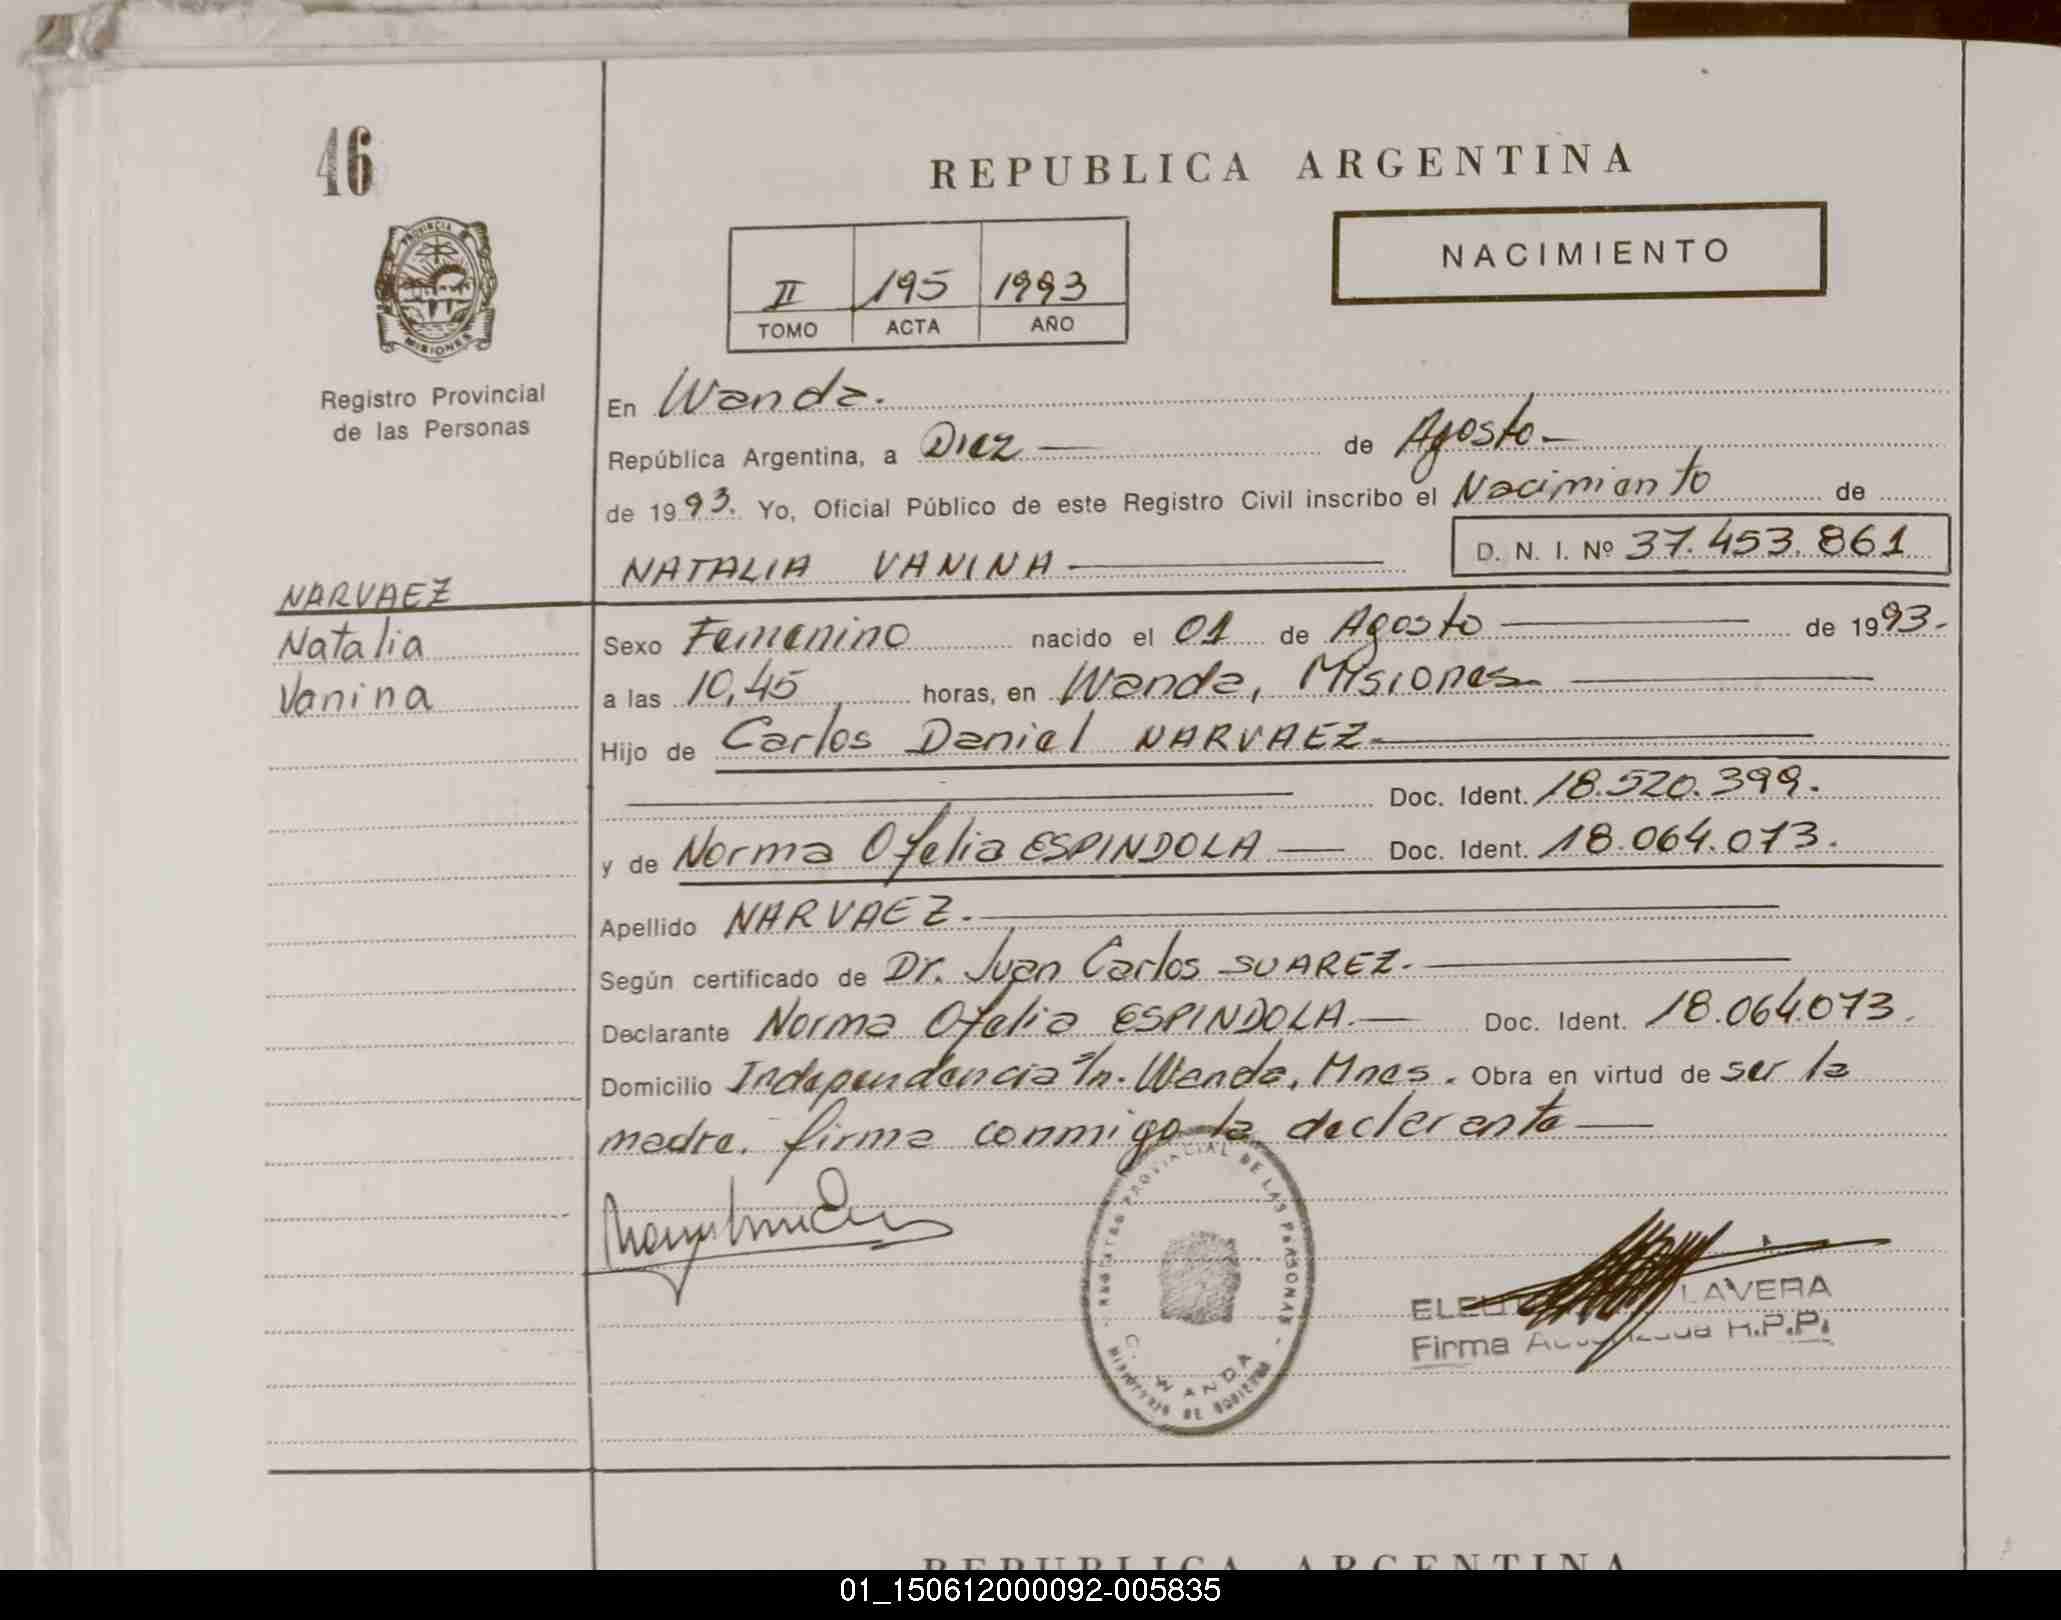 46
REPUBLICA ARGENTINA
NACIMIENTO
II 195 1993
TOMO ACTA AÑO
PROVINCIA
MISIONES
Registro Provincial
de las Personas
En Wanda.
República Argentina, a Diez de Agosto
de 1993. Yo, Oficial Público de este Registro Civil inscribo el Nacimiento de
NATALIA VANINA D. N. I. Nº 37.453.861
NARVAEZ
Natalia
Vanina
Sexo Femenino nacido el 01 de Agosto de 1993.
a las 10,45 horas, en Wanda, Misiones
Hijo de Carlos Daniel NARVAEZ
Doc. Ident. 18.520.399.
y de Norma Ofelia ESPINDOLA Doc. Ident. 18.064.073.
Apellido NARVAEZ.
Según certificado de Dr. Juan Carlos SUAREZ.
Declarante Norma Ofelia ESPINDOLA. Doc. Ident. 18.064.073.
Domicilio Independencia s/n. Wanda, Mnes. Obra en virtud de ser la
madre. firma conmigo la declarante
PROVINCIAL DE LAS PERSONAS
WANDA
MINISTERIO DE GOBIERNO
LAVERA
Firma R.P.P.
REPUBLICA ARGENTINA
01_150612000092-005835